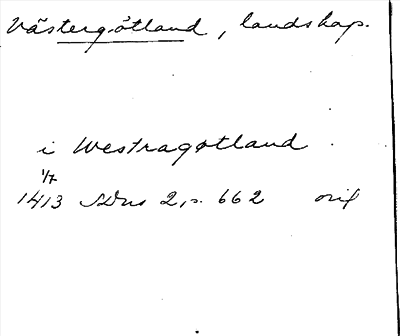 Västergötland, landskap.
i Westragøtland
1/7
1413 SDns 2, s. 662 orig